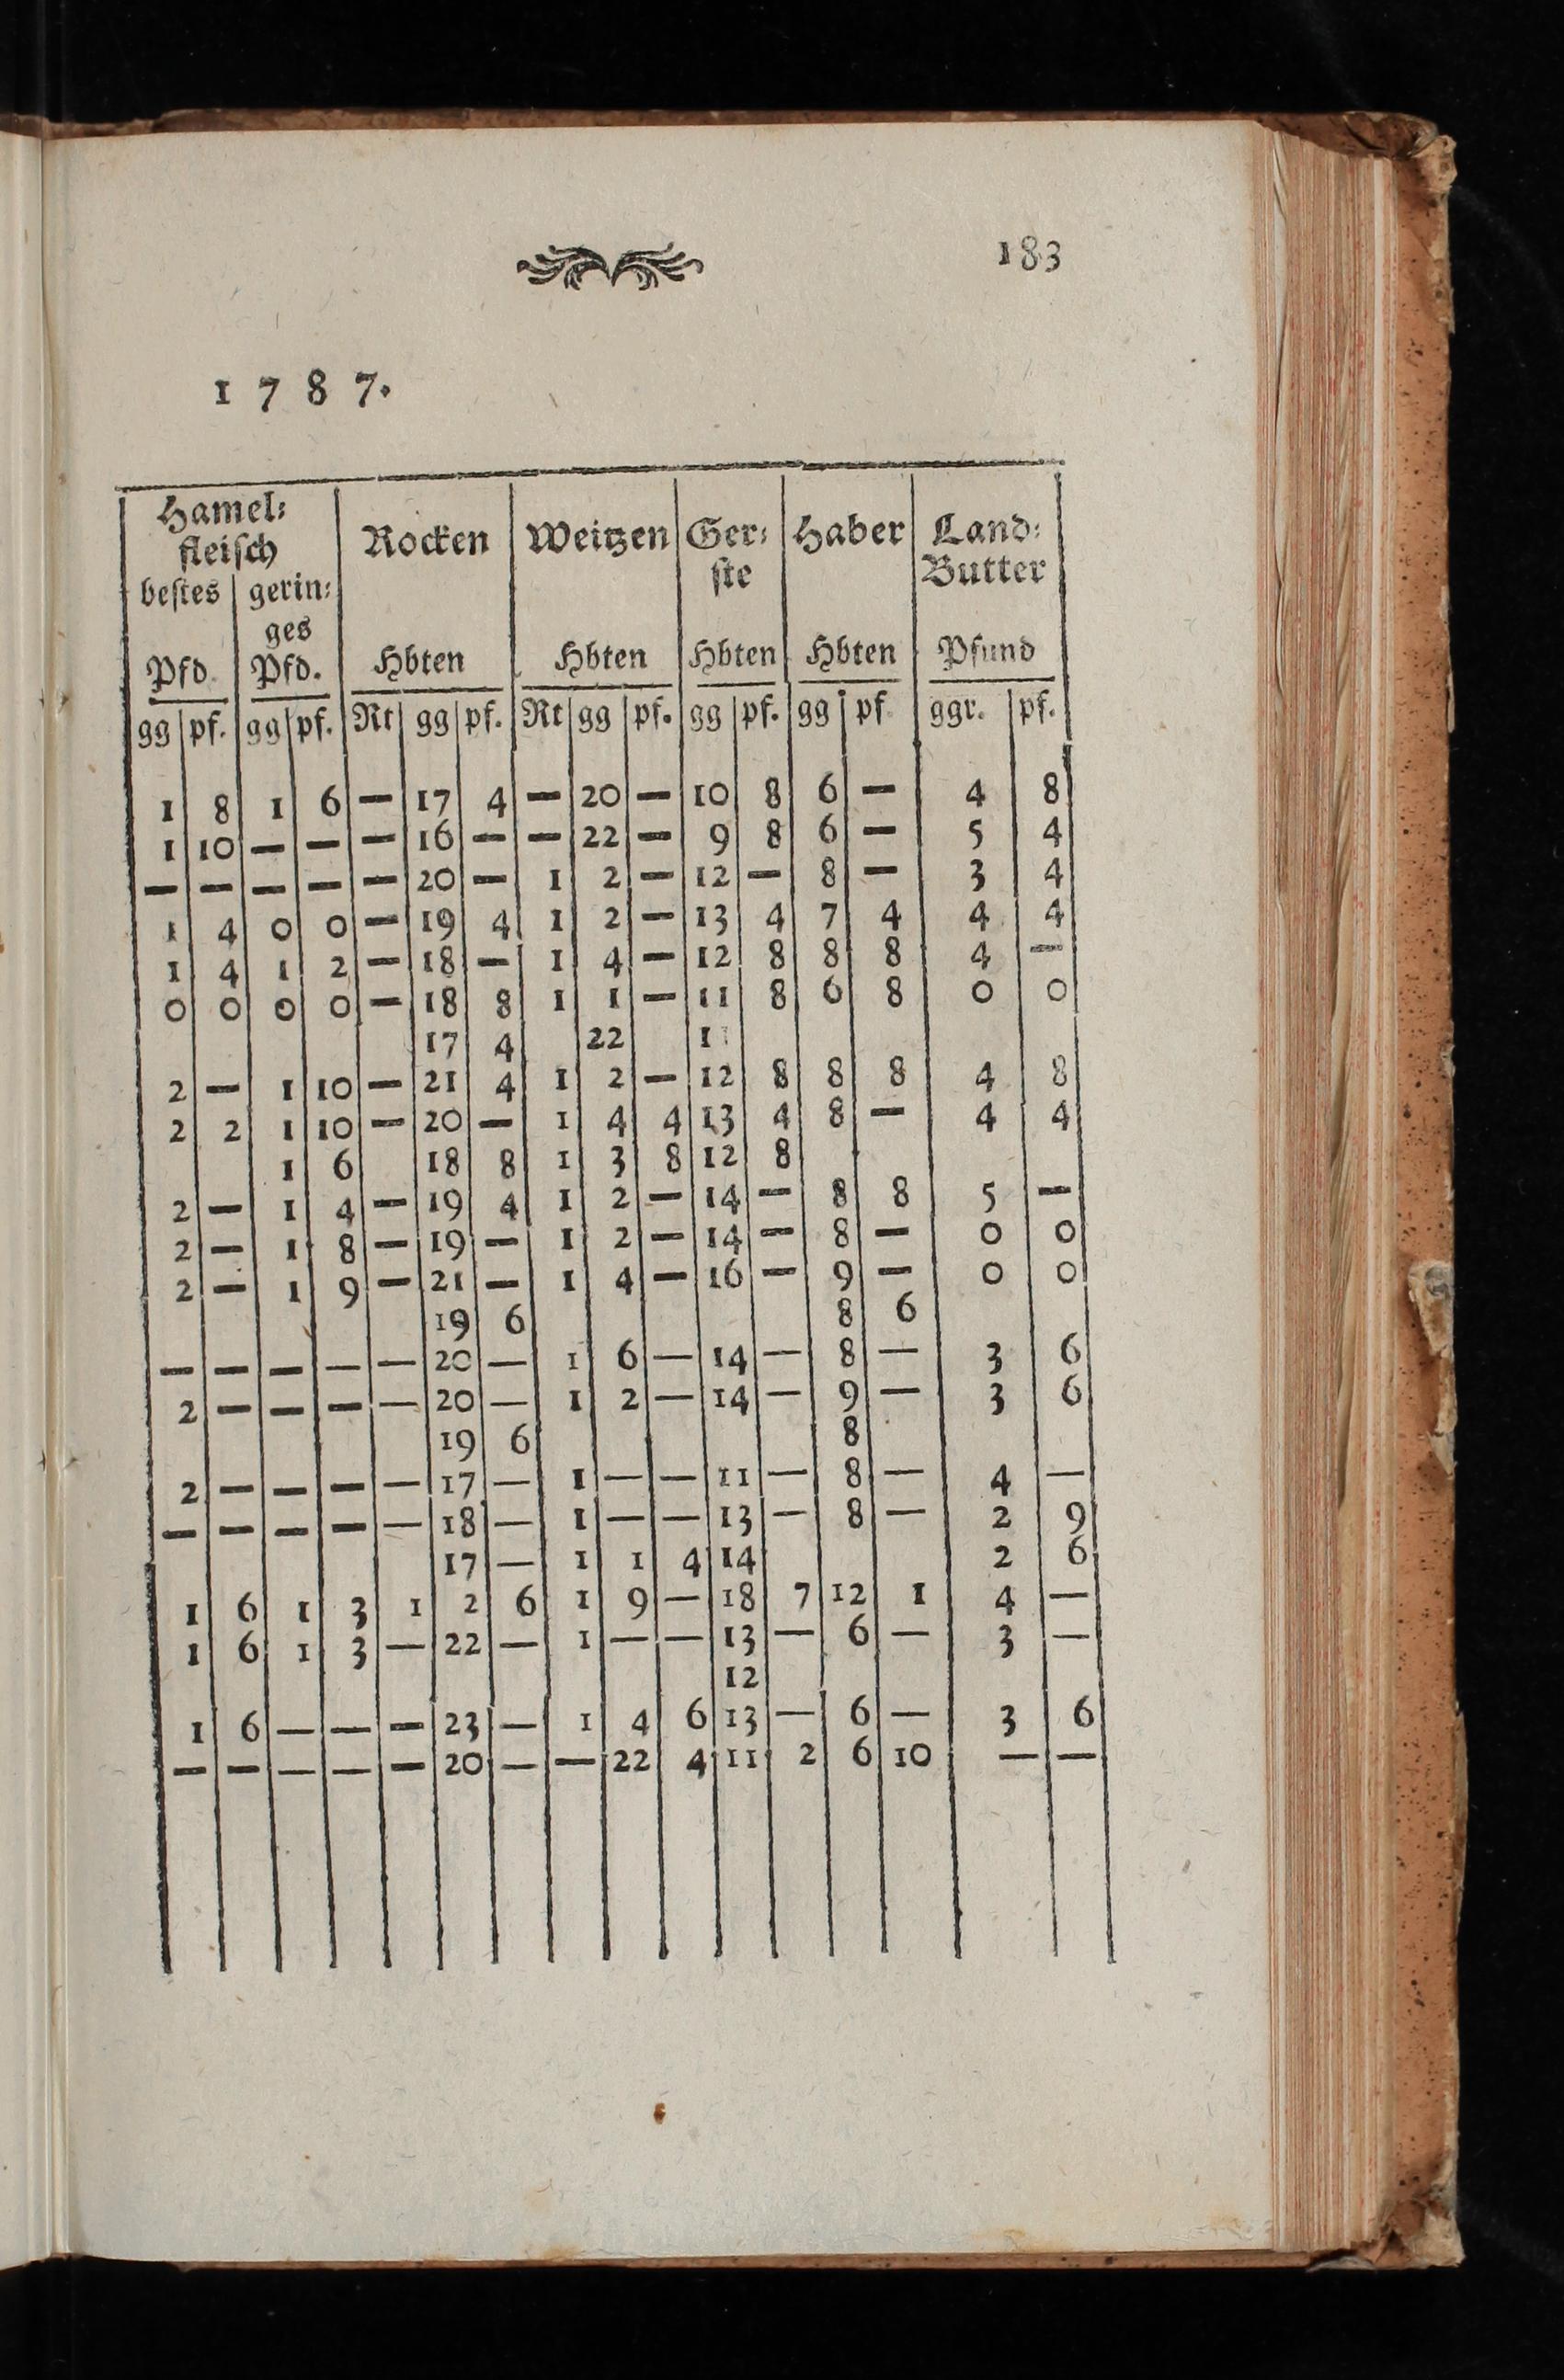 183
1 7 8 7.
Hamel⸗ fleisch | Rocken | Weitzen | Ger⸗ ste | Haber | Land⸗ Butter
bestes | gerin⸗ ges
Pfd. | Pfd. | Hbten | Hbten | Hbten | Hbten | Pfund
gg | pf. | gg | pf. | Rt | gg | pf. | Rt | gg | pf. | gg | pf. | gg | pf. | ggr. | pf.
1 | 8 | 1 | 6 | — | 17 | 4 | — | 20 | — | 10 | 8 | 6 | — | 4 | 8
1 | 10 | — | — | — | 16 | — | — | 22 | — | 9 | 8 | 6 | — | 5 | 4
— | — | — | — | — | 20 | — | 1 | 2 | — | 12 | — | 8 | — | 3 | 4
1 | 4 | 0 | 0 | — | 19 | 4 | 1 | 2 | — | 13 | 4 | 7 | 4 | 4 | 4
1 | 4 | 1 | 2 | — | 18 | — | 1 | 4 | — | 12 | 8 | 8 | 8 | 4 | —
0 | 0 | 0 | 0 | — | 18 | 8 | 1 | 1 | — | 11 | 8 | 6 | 8 | 0 | 0
 | | | | | 17 | 4 | | 22 | | | | | | |
2 | — | 1 | 10 | — | 21 | 4 | 1 | 2 | — | 12 | 8 | 8 | 8 | 4 | 8
2 | 2 | 1 | 10 | — | 20 | — | 1 | 4 | 4 | 13 | 4 | 8 | — | 4 | 4
 | | 1 | 6 | | 18 | 8 | 1 | 3 | 8 | 12 | 8 | | | |
2 | — | 1 | 4 | — | 19 | 4 | 1 | 2 | — | 14 | — | 8 | 8 | 5 | —
2 | — | 1 | 8 | — | 19 | — | 1 | 2 | — | 14 | — | 8 | — | 0 | 0
2 | — | 1 | 9 | — | 21 | — | 1 | 4 | — | 16 | — | 9 | — | 0 | 0
 | | | | | 19 | 6 | | | | | | 8 | 6 | |
— | — | — | — | — | 20 | — | 1 | 6 | — | 14 | — | 8 | — | 3 | 6
2 | — | — | — | — | 20 | — | 1 | 2 | — | 14 | — | 9 | — | 3 | 6
 | | | | | 19 | 6 | | | | | | 8 | | |
2 | — | — | — | — | 17 | — | 1 | — | — | 11 | — | 8 | — | 4 | —
— | — | — | — | — | 18 | — | 1 | — | — | 13 | — | 8 | — | 2 | 9
 | | | | | 17 | — | 1 | 1 | 4 | 14 | | | | 2 | 6
1 | 6 | 1 | 3 | 1 | 2 | 6 | 1 | 9 | — | 18 | 7 | 12 | 1 | 4 | —
1 | 6 | 1 | 3 | — | 22 | — | 1 | — | — | 13 | — | 6 | — | 3 | —
 | | | | | | | | | | 12 | | | | |
1 | 6 | — | — | — | 23 | — | 1 | 4 | 6 | 13 | — | 6 | — | 3 | 6
— | — | — | — | — | 20 | — | — | 22 | 4 | 11 | 2 | 6 | 10 | — | —